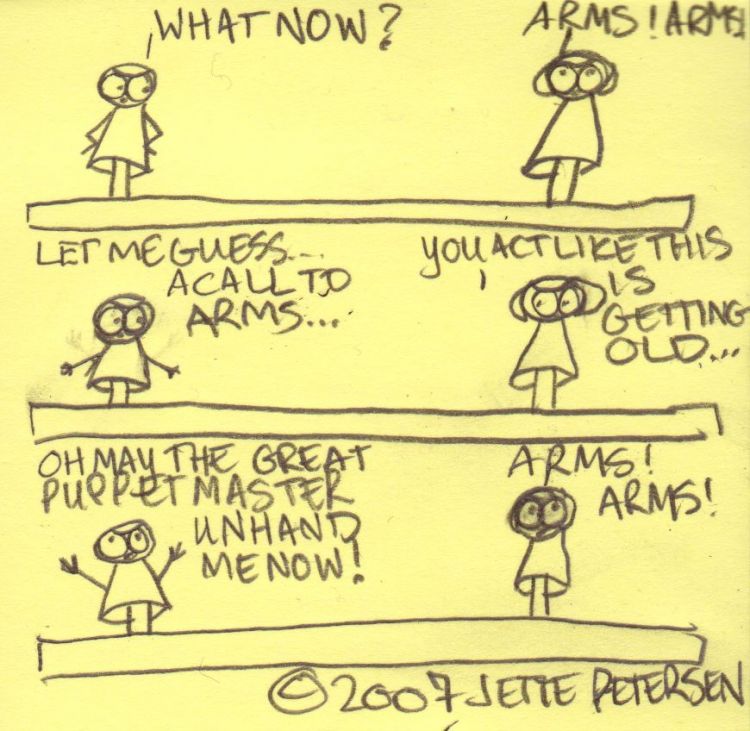 WHAT NOW?
ARMS! ARMS!
LET ME GUESS...
A CALL TO
ARMS...
YOU ACT LIKE THIS
IS
GETTING
OLD...
OH MAY THE GREAT
PUPPET MASTER
UNHAND
ME NOW!
ARMS!
ARMS!
©2007 JETTE PETERSEN